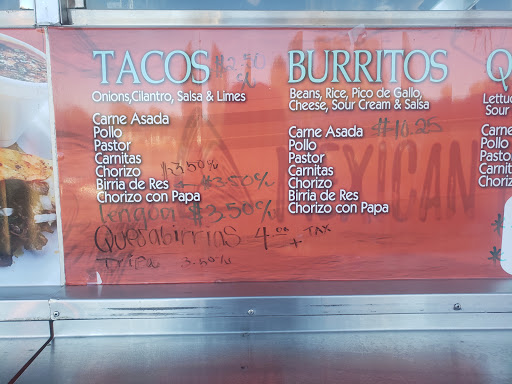 TACOS $2.50 %
Onions,Cilantro, Salsa & Limes
Carne Asada
Pollo
Pastor
Carnitas
Chorizo 3.50%
Birria de Res $3.50%
Chorizo con Papa
Lengua $3.50%
Quesabirrias 4.00 + TAX
Tripa 3.50%
BURRITOS
Beans, Rice, Pico de Gallo,
Cheese, Sour Cream & Salsa
Carne Asada $10.25
Pollo
Pastor
Carnitas
Chorizo
Birria de Res
Chorizo con Papa
MEXICAN
Q
Lettuc
Sour
Carne
Pollo
Pasto
Carnit
Choriz